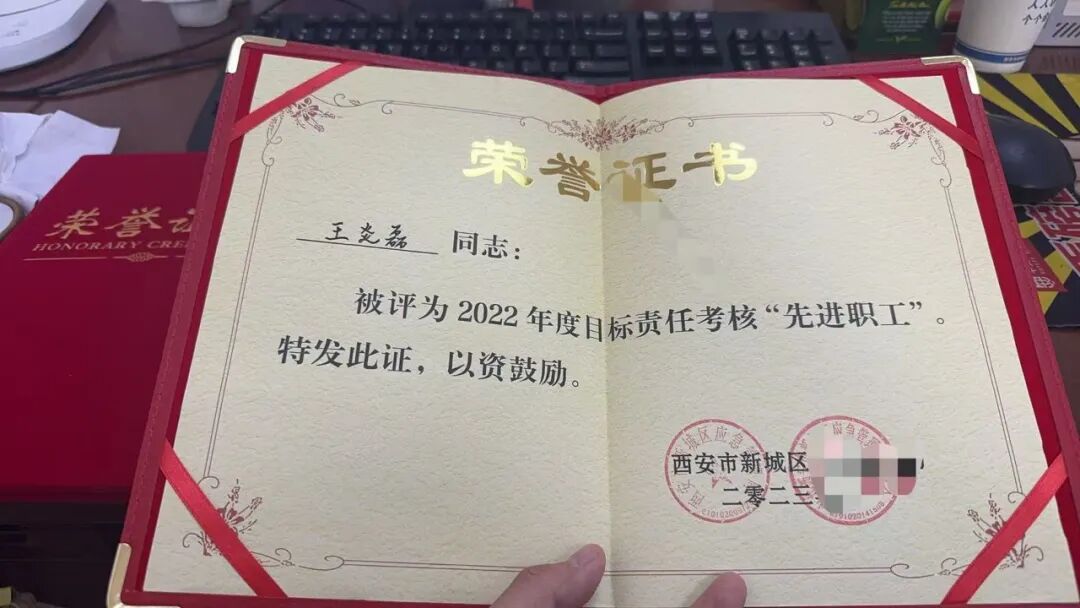 荣誉证书
王炎磊 同志：
被评为 2022 年度目标责任考核“先进职工”。
特发此证，以资鼓励。
西安市新城区
二零二三
荣誉证
HONORARY CRE